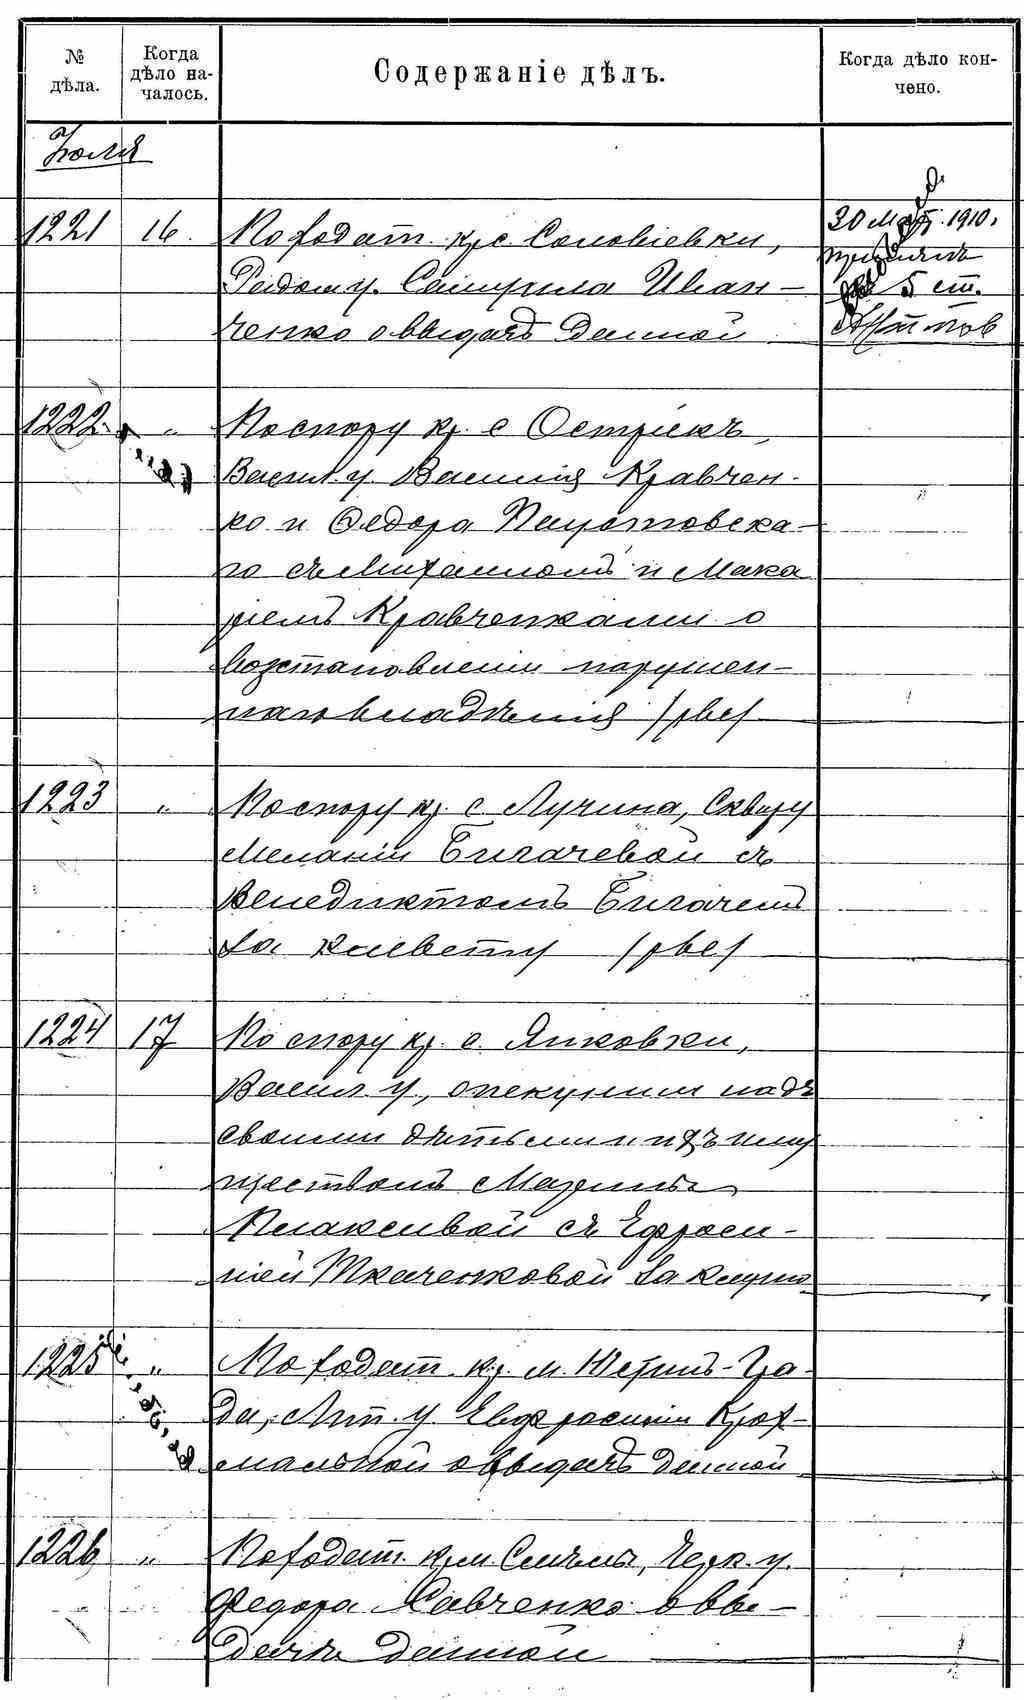 № дѣла.
Когда дѣло на-
чалось.
Содержаніе дѣлъ.
Когда дѣло кон-
чено.
Іюля
1221 16 По ходат. кр. с. Соловіевки, 30 1910 г.
Радом. у. Самуила Иван-
ченко о выдачѣ данной 5 ст.
1222 " По спору кр. с Остріекъ,
Васил. у. Василія Кравчен-
ко и Федора
го съ Михаиломъ и Мака
ріемъ Кравченками о
возстановленіи нарушен-
наго владѣнія /рве/
1223 " По спору кр. с Лучина, Сквир у
Меланіи Бигачевой съ
Венедиктомъ Бигачемъ
за клевету /рве/
1224 17 По спору кр. с. Янковки,
Васил. у, опекунши надъ
своими дѣтьми и ихъ иму
ществомъ Марины
Плаксивой съ Ефроси-
ніей Ткаченковой за клуню
1225 " По ходат. кр. м. Игра-
да, Лип. у. Евфросиніи Крох-
мальной о выдачѣ данной
1226 " По ходат. кр. м. Смѣлы, Черк. у.
Федора Савченко о вы-
дачѣ данной